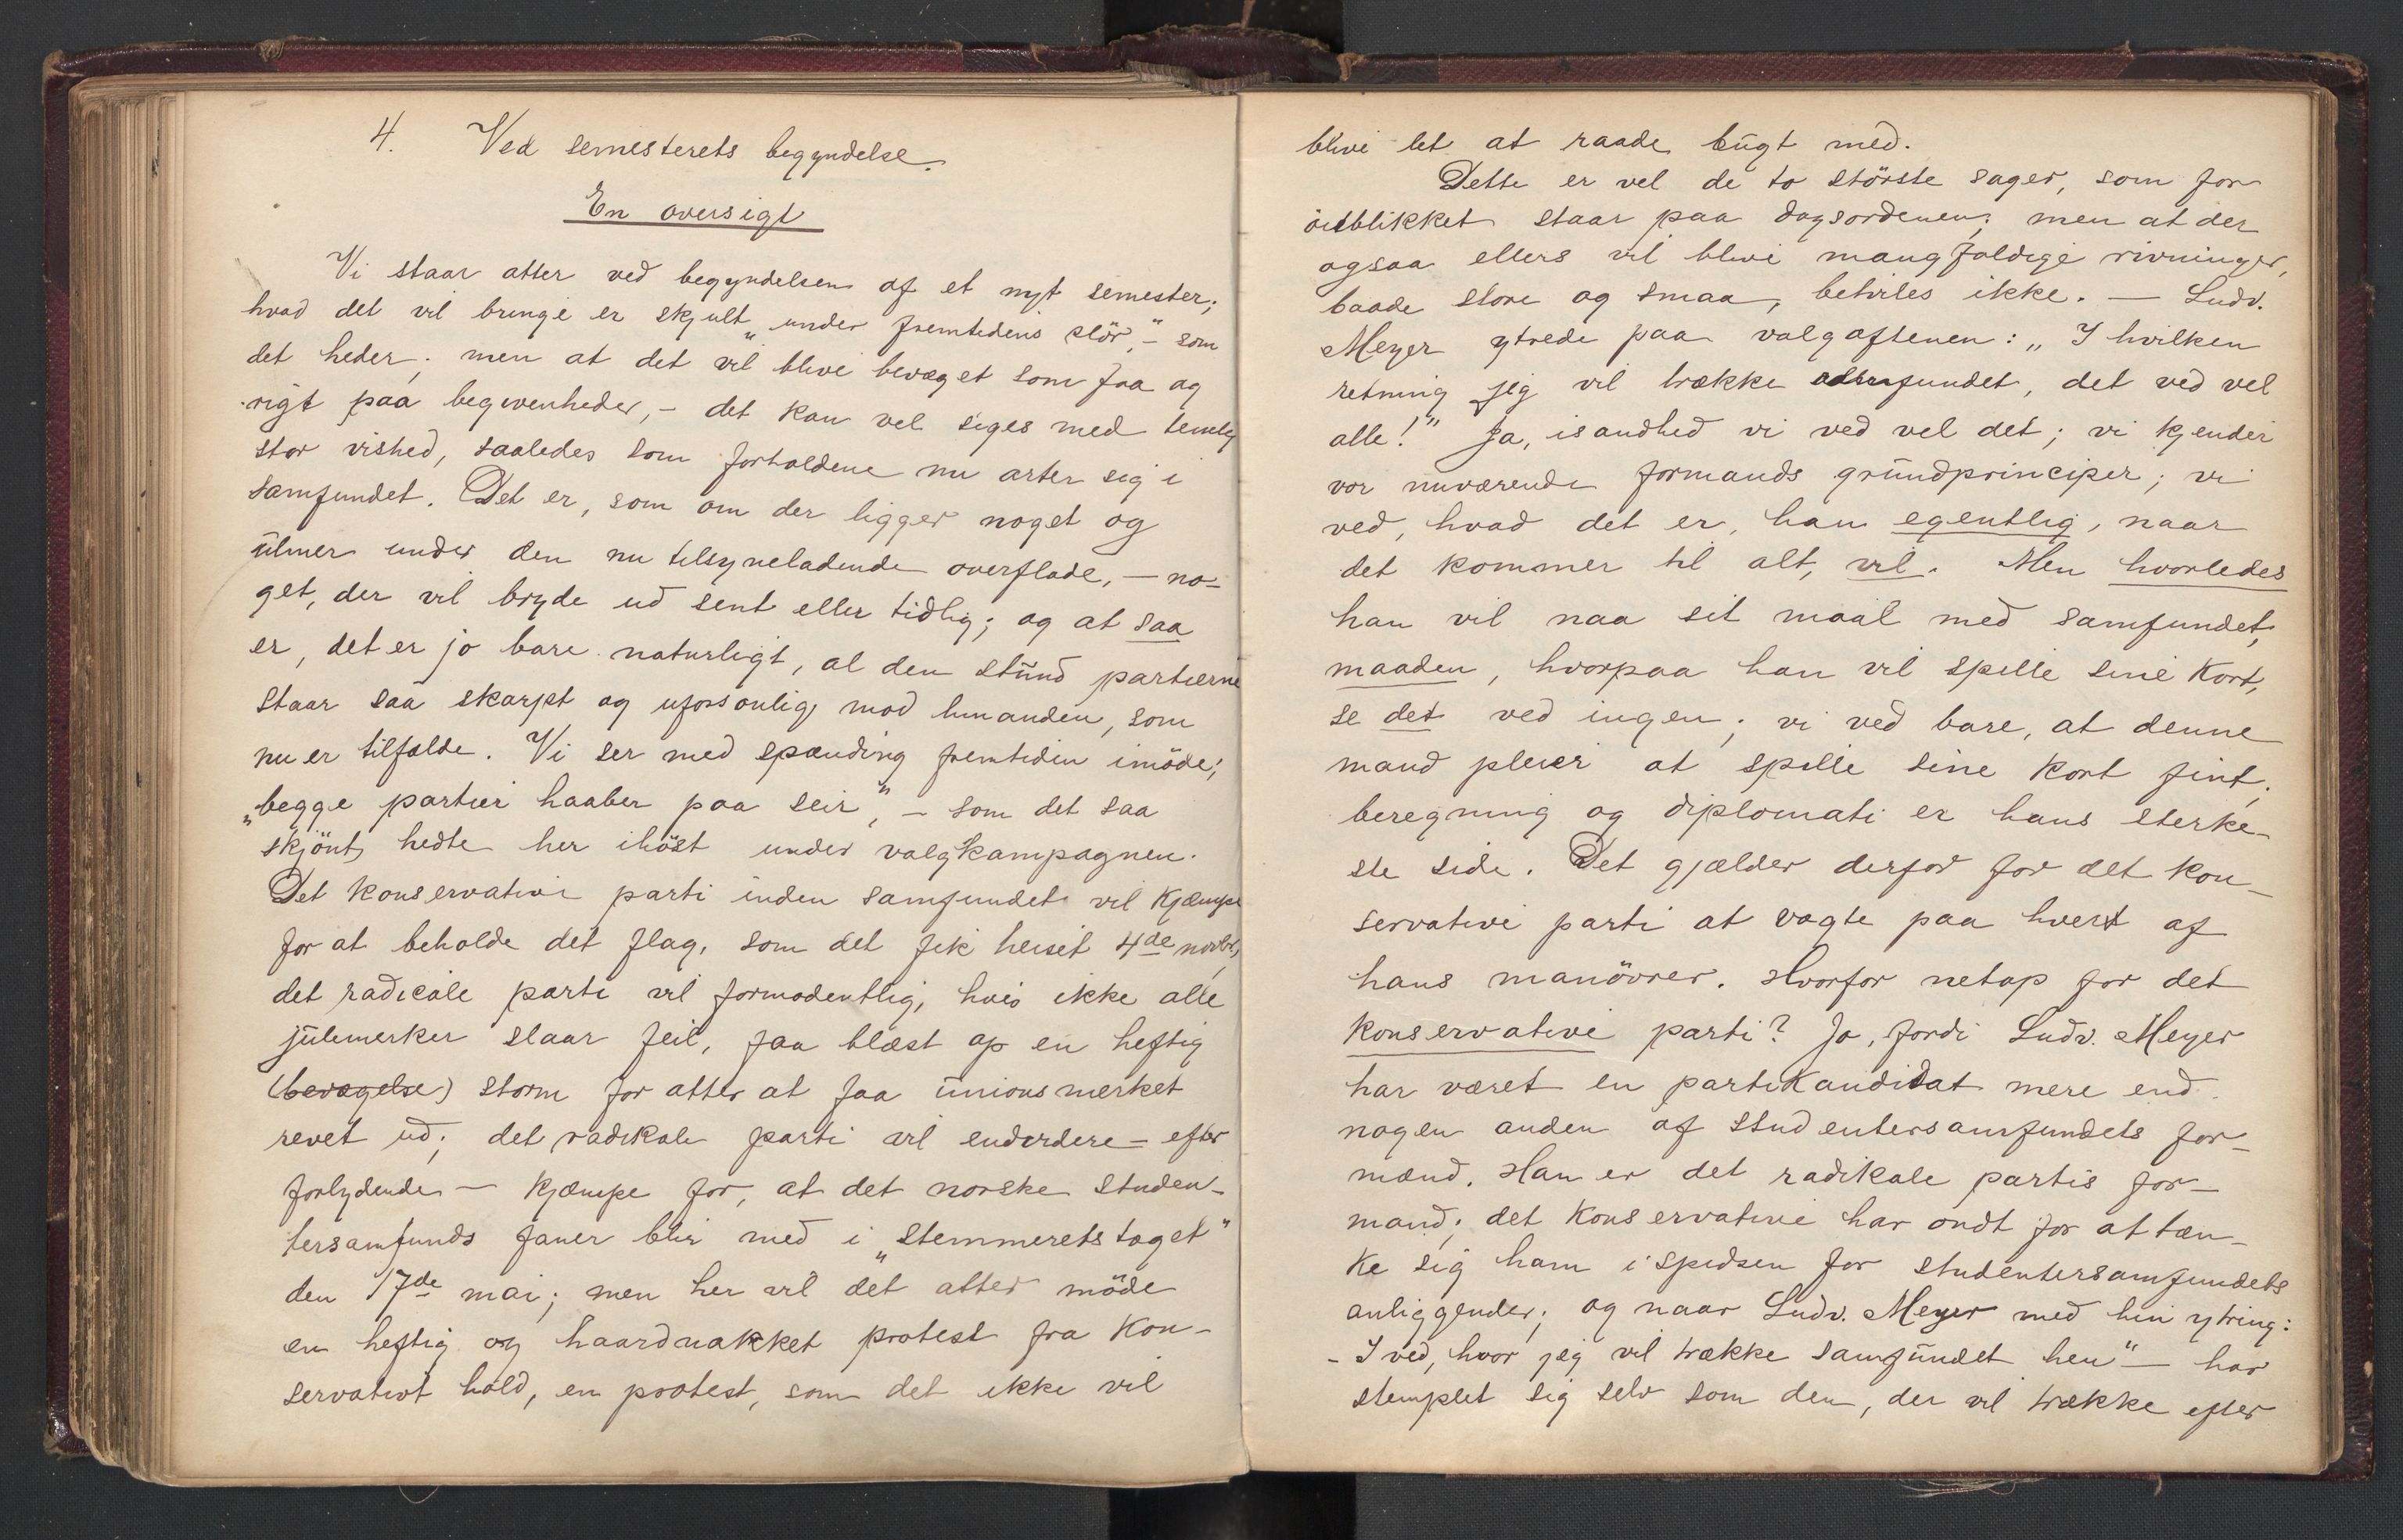 4. Ved semesterets begyndelse.
En oversigt
Vi staar atter ved begyndelsen af et nyt semester;
hvad det vil bringe er skjult „under fremtidens slör,“ som
det heder; men at det vil blive bevæget som faa og
rigt paa begivenheder, – det kan vel siges med temlig
stor vished, saaledes som forholdene nu arter sig i
samfundet. Det er, som om der ligger noget og
ulmer under den nu tilsyneladende overflade, – no-
get, der vil bryde ud sent eller tidlig; og at saa
er, det er jo bare naturligt, al den stund partierne
staar saa skarpt og uforsonlig mod hinanden, som
nu er tilfælde. Vi ser med spænding fremtiden imöde;
„begge partier haaber paa seir“, – som det saa
skjönt hedte her ihöst under valgkampagnen.
Det konservative parti inden samfundet vil kjæmpe
for at beholde det flag, som det fik heiset 4de novbr,
det radicale parti vil formodentlig, hvis ikke alle
julemerker slaar feil, faa blæst op en heftig
(bevægelse) storm for atter at faa unionsmerket
revet ud; det radikale parti vil endvidere – efter
forlydende – kjæmpe for, at det norske studen-
tersamfunds faner blir med i „stemmeretstoget“
den 17de mai; men her vil det atter möde
en heftig og haardnakket protest fra kon-
servativt hold, en protest, som det ikke vil
blive let at raade bugt med.
Dette er vel de to störste sager, som for
öieblikket staar paa dagsordenen; men at der
ogsaa ellers vil blive mangfoldige rivninger,
baade store og smaa, betviles ikke. – Ludv.
Meyer ytrede paa valgaftenen: „I hvilken
retning jeg vil trække samfundet, det ved vel
alle!“ Ja, isandhed vi ved vel det; vi kjender
vor nuværende formands grundprinciper; vi
ved, hvad det er, han egentlig, naar
det kommer til alt, vil. Men hvorledes
han vil naa sit maal med samfundet,
maaden, hvorpaa han vil spille sine kort,
se det ved ingen; vi ved bare, at denne
mand pleier at spille sine kort fint;
beregning og diplomati er hans sterke-
ste side. Det gjælder derfor for det kon-
servative parti at vagte paa hvert af
hans manövrer. Hvorfor netop for det
konservative parti? Jo, fordi Ludv. Meyer
har været en partikandidat mere end
nogen anden af studentersamfundets for-
mænd. Han er det radikale partis for-
mand; det konservative har ondt for at tæn-
ke sig ham i spidsen for studentersamfundets
anliggender; og naar Ludv. Meyer med hin ytring:
– I ved, hvor jeg vil trække samfundet hen“ – har
stemplet sig selv som den, der vil trække efter